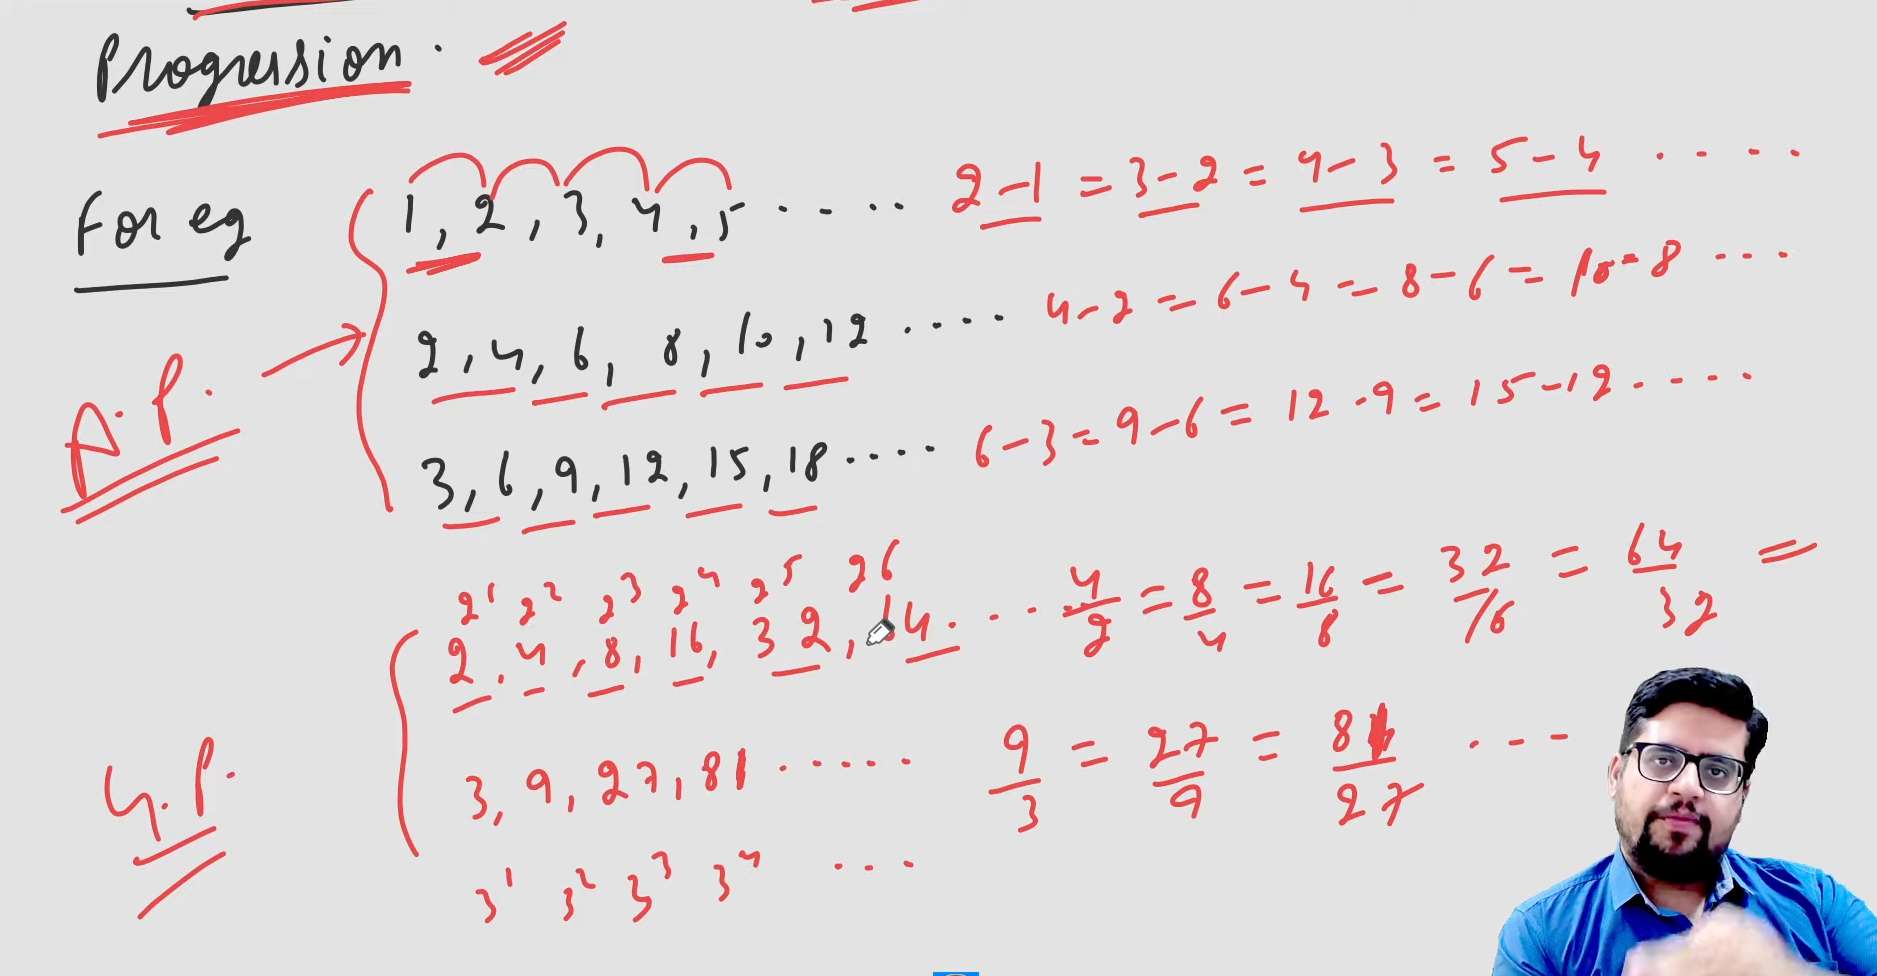 Progression.
For eg
1, 2, 3, 4, 5 ..... 2-1 = 3-2 = 4-3 = 5-4 ....
2, 4, 6, 8, 10, 12 .... 4-2 = 6-4 = 8-6 = 10-8 ...
A.P.
3, 6, 9, 12, 15, 18 .... 6-3 = 9-6 = 12-9 = 15-12 ....
2¹ 2² 2³ 2⁴ 2⁵ 26
2, 4, 8, 16, 32, 64 ... 4/2 = 8/4 = 16/8 = 32/16 = 64/32 =
G.P.
3, 9, 27, 81 ..... 9/3 = 27/9 = 81/27 ...
3¹ 3² 3³ 3⁴ ...